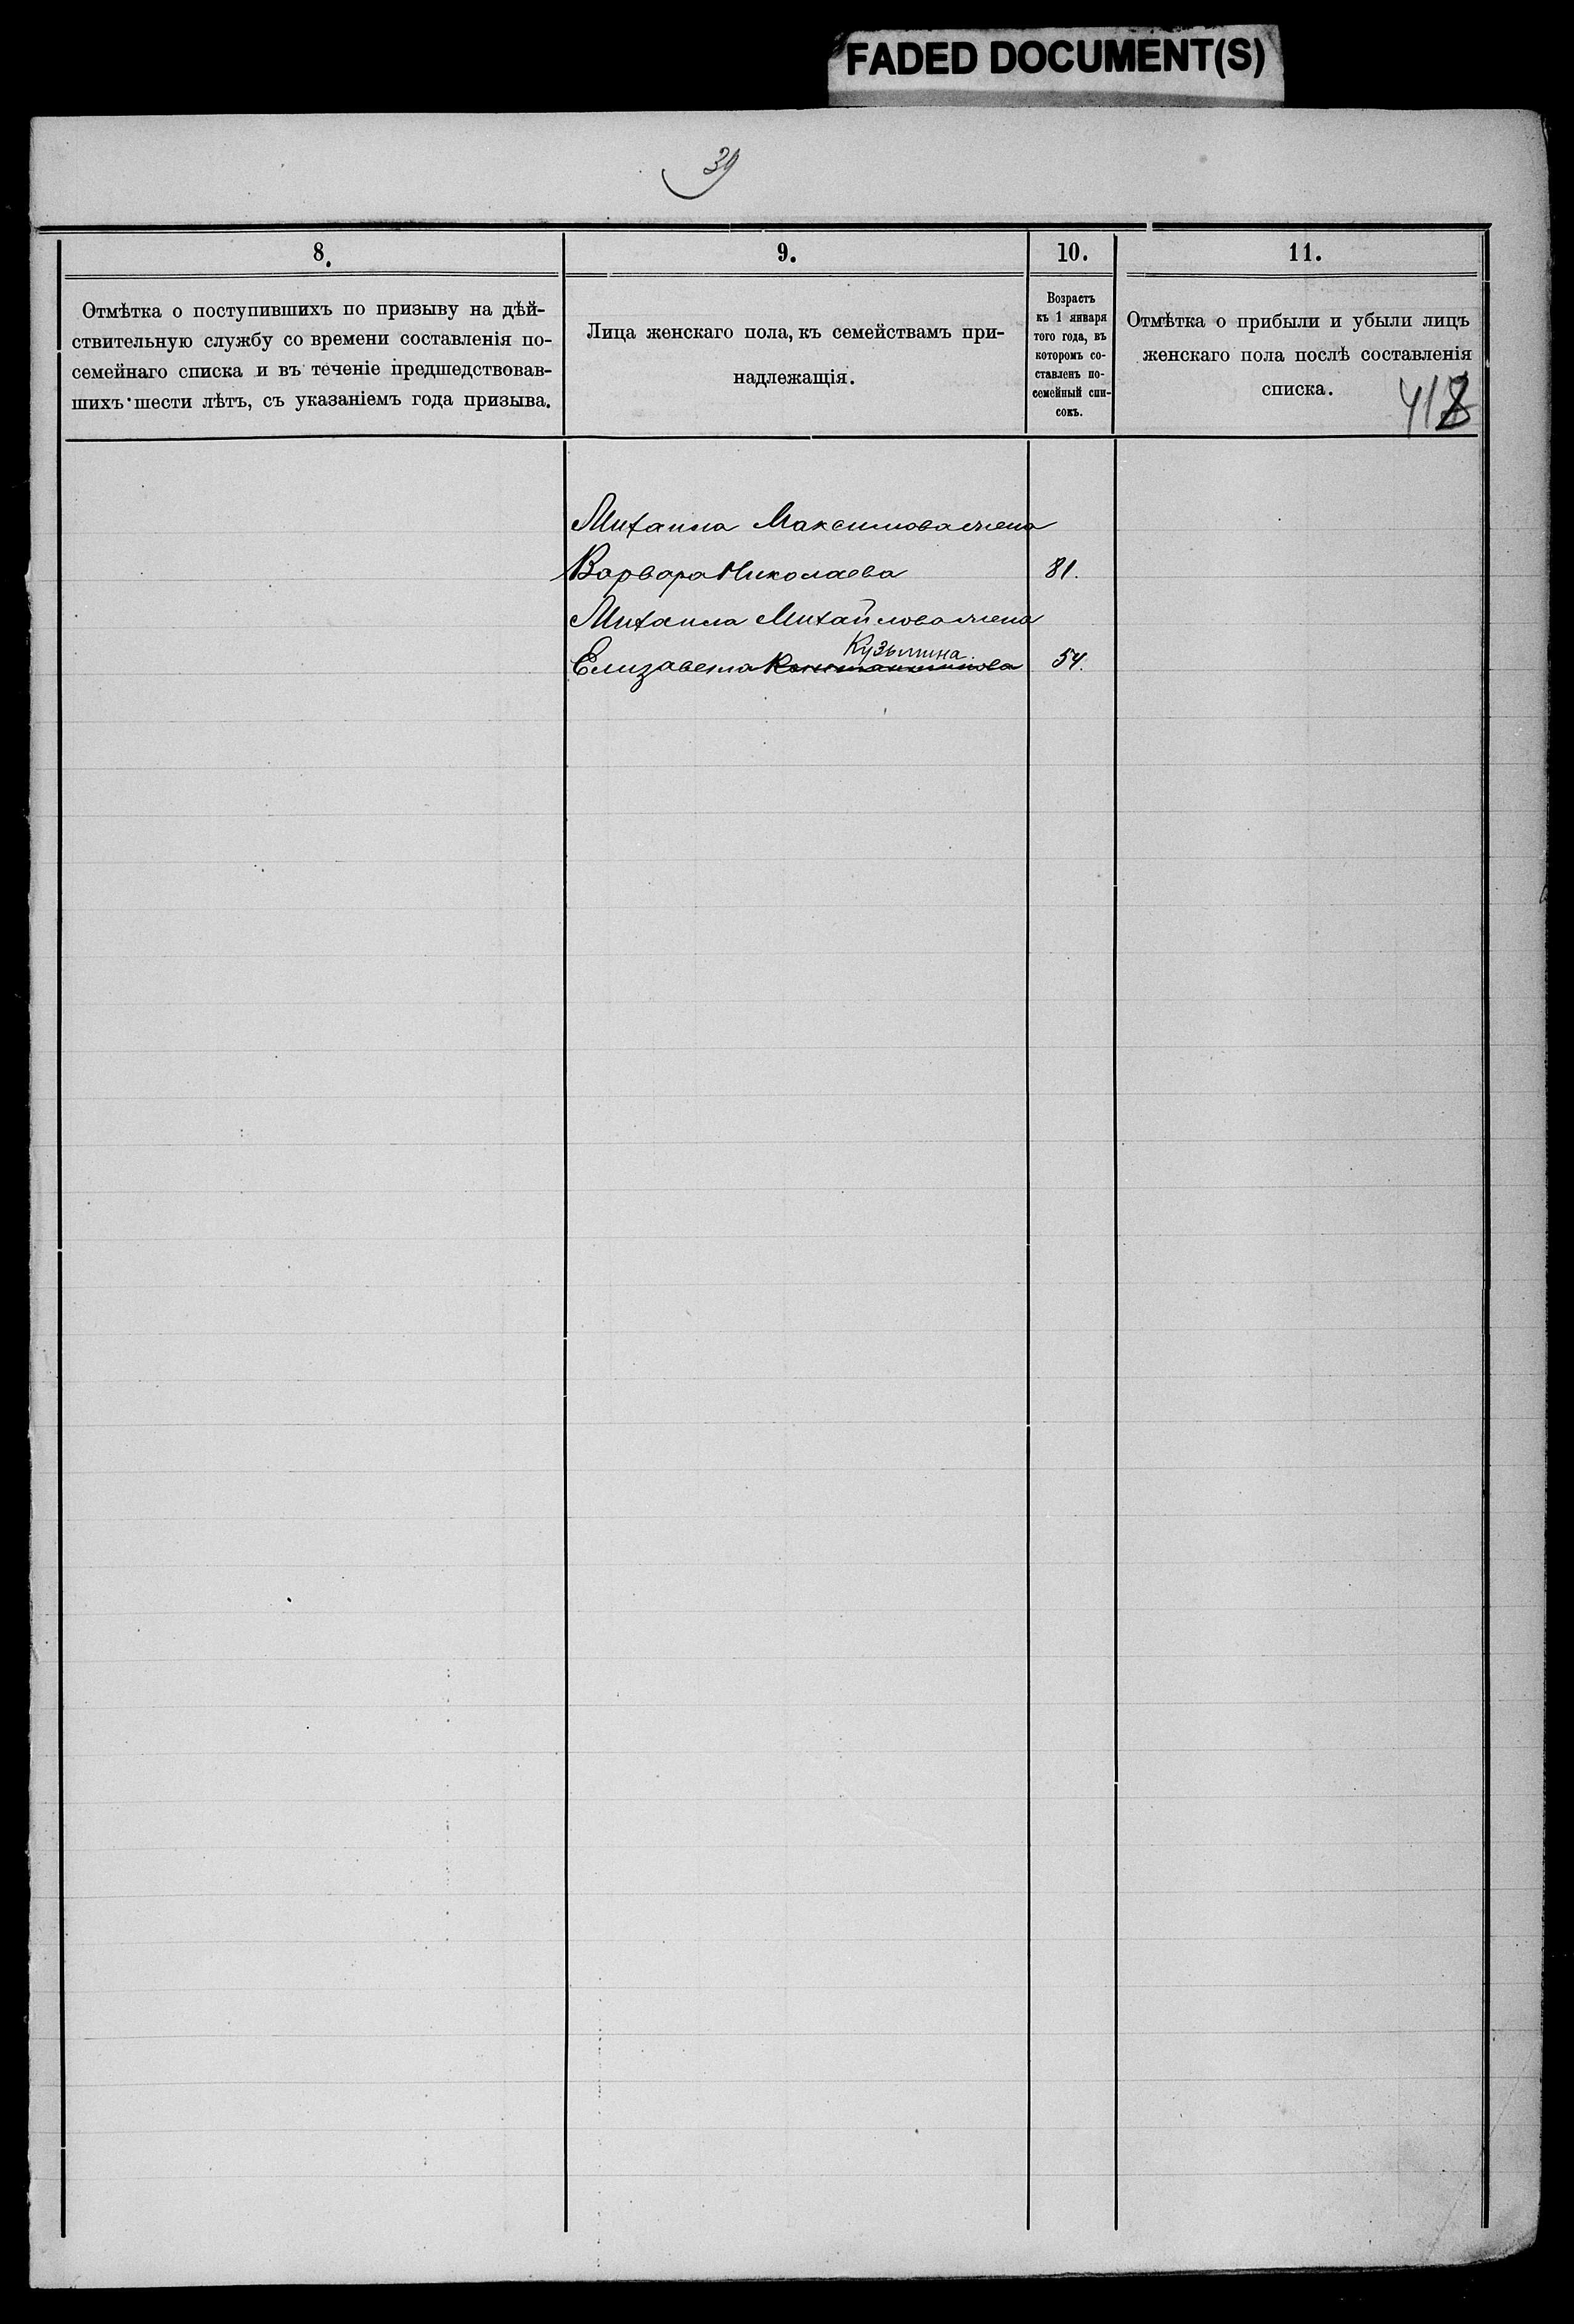 FADED DOCUMENT(S)
39
8.
Отмѣтка о поступившихъ по призыву на дѣй-
ствительную службу со времени составленія по-
семейнаго списка и въ теченіе предшедствовав-
шихъ шести лѣтъ, съ указаніемъ года призыва.
9.
Лица женскаго пола, къ семействамъ при-
надлежащія.
10.
Возрастъ
къ 1 января
того года, въ
которомъ со-
ставленъ по-
семейный спи-
сокъ.
11.
Отмѣтка о прибыли и убыли лицъ
женскаго пола послѣ составленія
списка.
Михаила Максимова жена
Варвара Николаева 81.
Михаила Михайлова жена
Кузьмина
Елизавета Константинова 54.